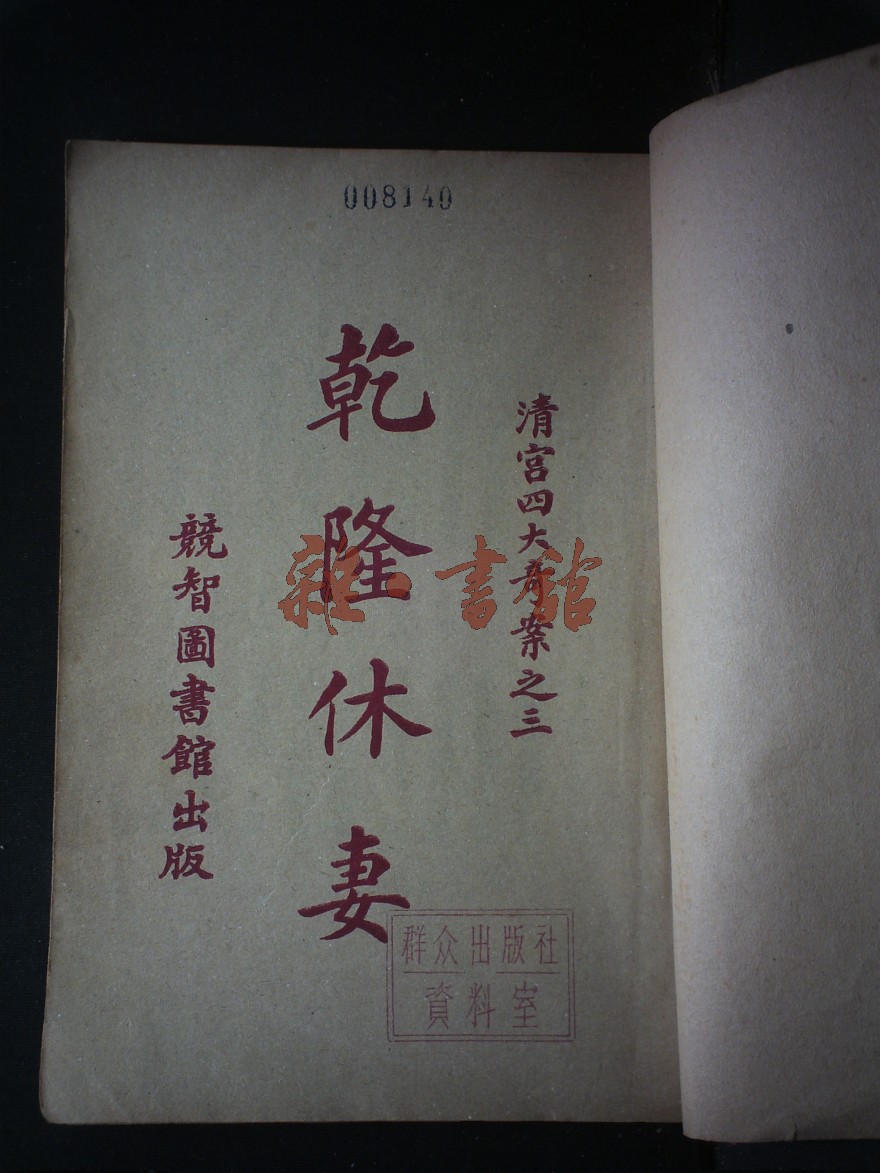 008140
清宮四大奇案之三
乾隆休妻
競智圖書館出版
雜·書館
群众出版社
資料室